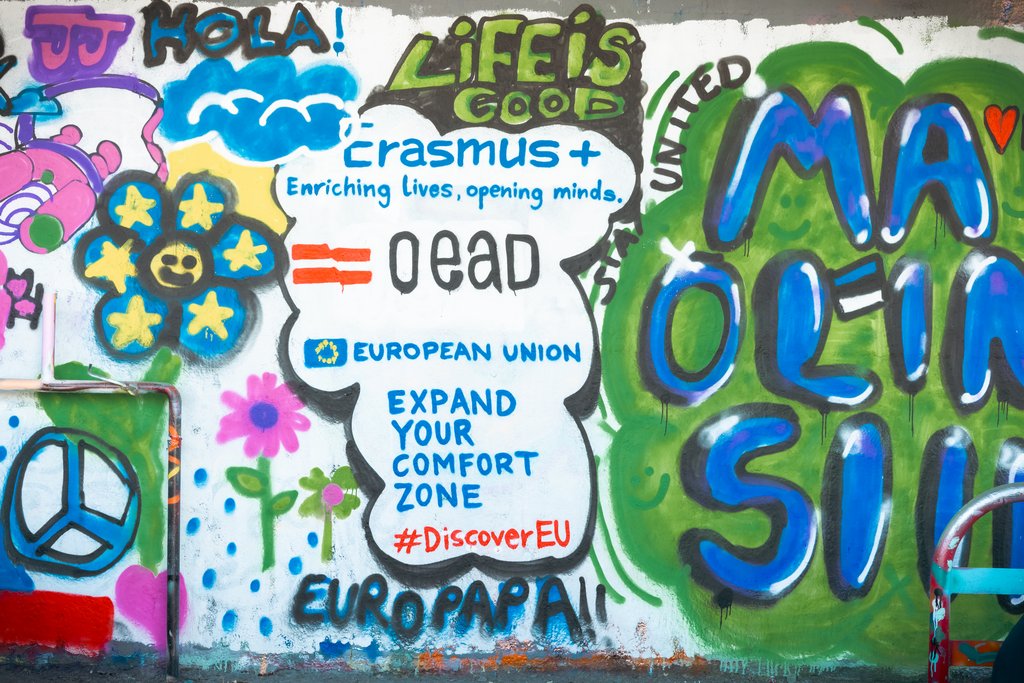 JJ
HOLA!
LiFE iS
GOOD
UNITED
Erasmus+
Enriching lives, opening minds.
OeAD
EUROPEAN UNION
EXPAND
YOUR
COMFORT
ZONE
#DiscoverEU
EUROPAPA!!
MA